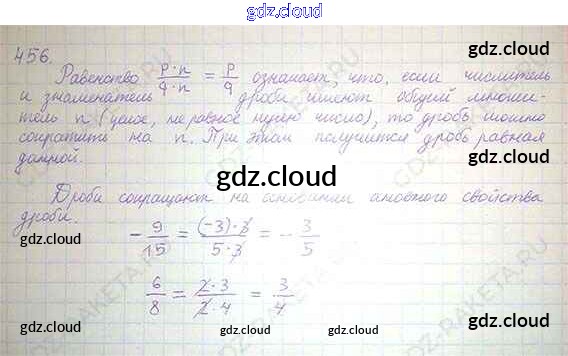 gdz.cloud
456.
gdz.cloud
Равенство p·n/q·n = p/q означает что, если числитель
и знаменатель дроби имеют общий множи-
gdz.cloud
тель n (целое, не равное нулю число), то дробь можно
сократить на n. При этом получится дробь равная
данной.
gdz.cloud
Дроби сокращают на основании основного свойства
дроби.
gdz.cloud
-9/15 = (-3)·3/5·3 = -3/5
gdz.cloud
6/8 = 2·3/2·4 = 3/4
gdz.cloud gdz.cloud gdz.cloud
GDZ-RAKETA.RU